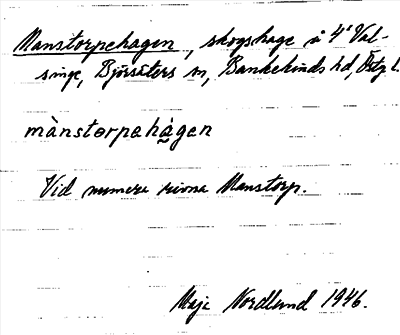 Manstorpehagen, skogshage å 4' Val-
singe, Björsäters sn, Bankekinds hd, Östg l.
mànstorpehàgen
Vid numera rivna Manstorp.
Maje Nordlund 1946.